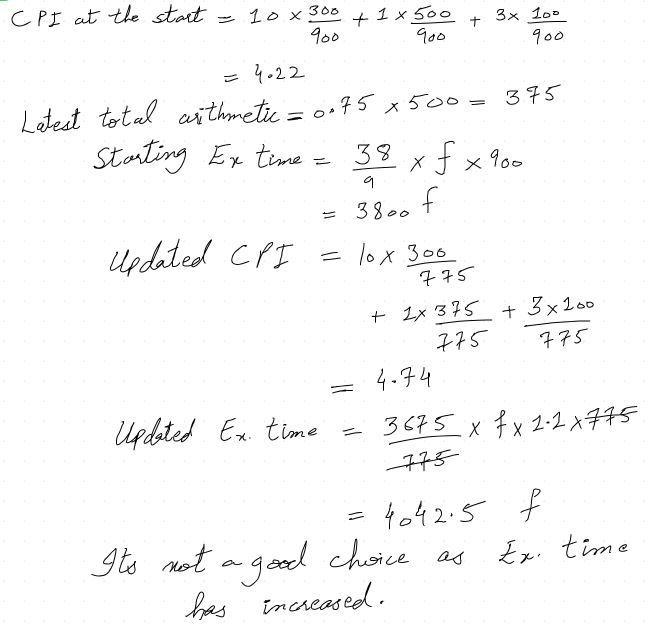 CPI at the start = 10 × 300/900 + 1 × 500/900 + 3× 100/900
= 4.22
Latest total arithmetic = 0.75 × 500 = 375
Starting Ex time = 38/9 × f × 900
= 3800 f
Updated CPI = 10 × 300/775
+ 1× 375/775 + 3×100/775
= 4.74
Updated Ex. time = 3675/775 × f × 1.1 × 775
= 4042.5 f
Its not a good choice as Ex. time
has increased.